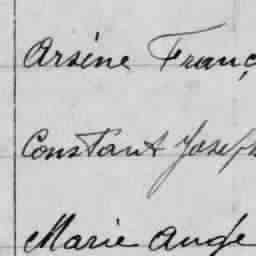 Arsène Franç
Constant Joseph
Marie Ange